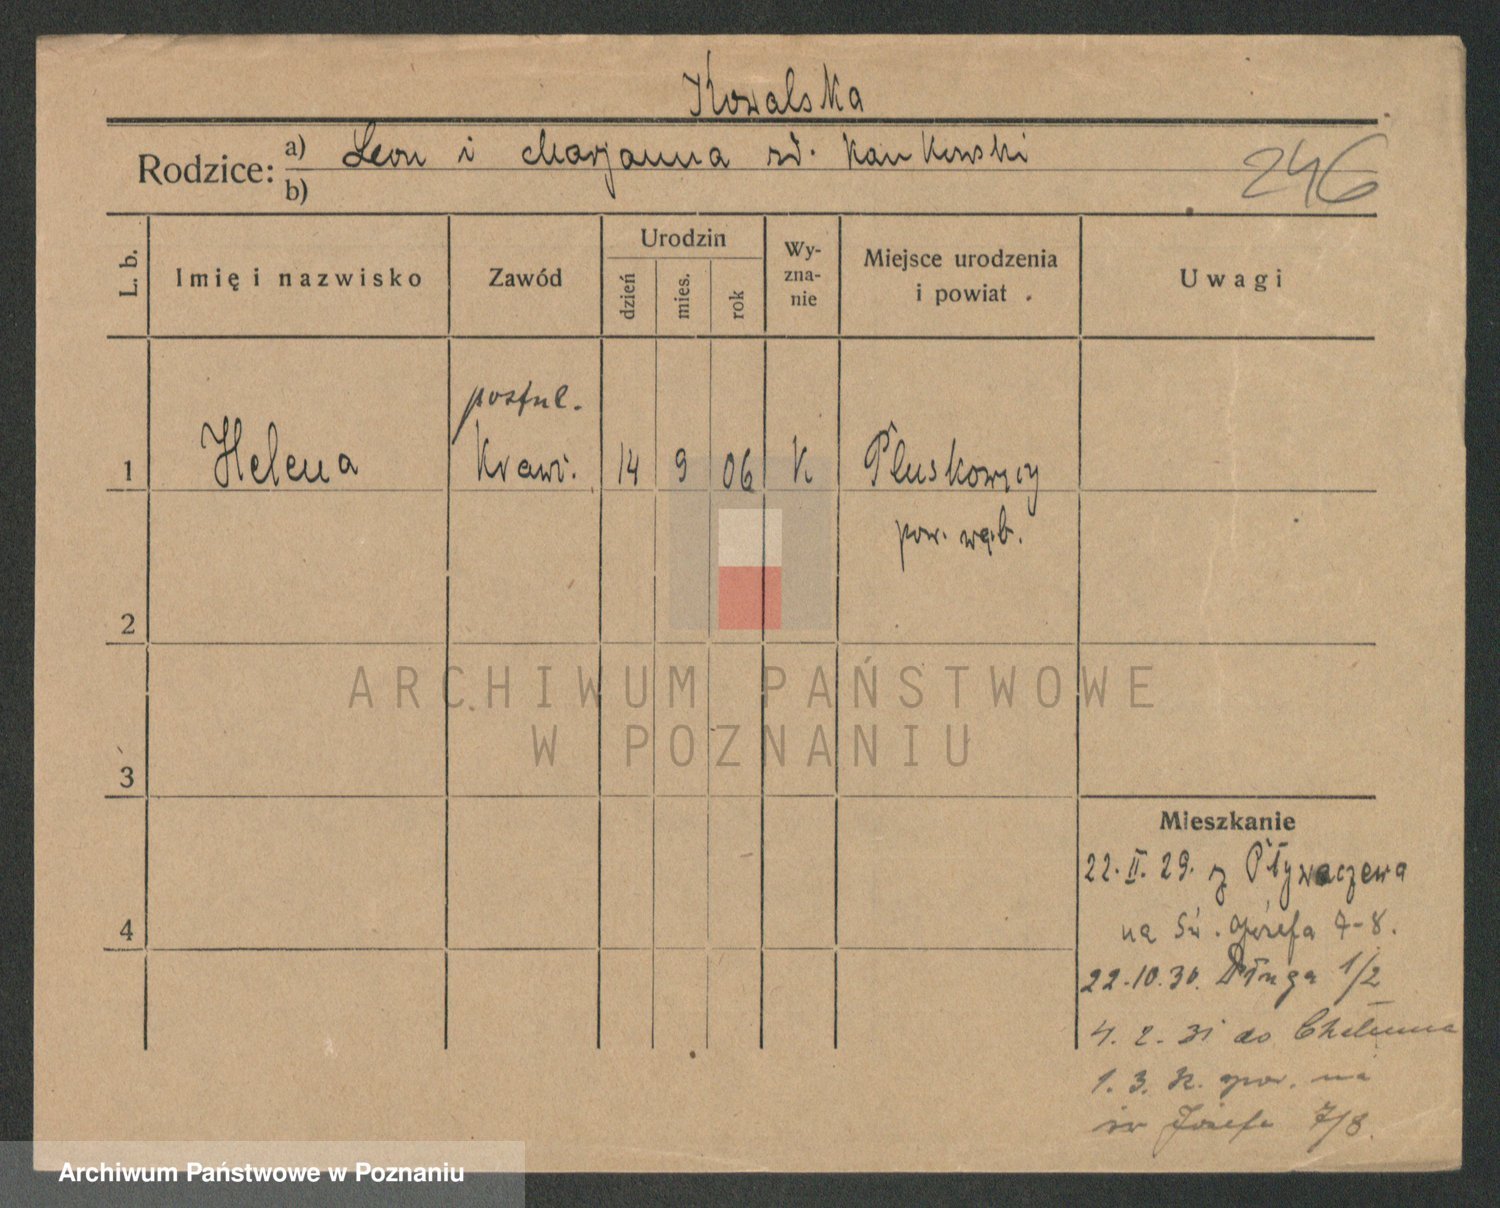 Kowalska
Rodzice: a) Leon i Marjanna zd. Kankowski
b)
246
L. b.
Imię i nazwisko
Zawód
Urodzin
dzień
mies.
rok
Wy-
zna-
nie
Miejsce urodzenia
i powiat
Uwagi
postul.
1 Helena Kraw. 14 9 06 K Pluskowęcy
pow. wąb.
2
ARCHIWUM PAŃSTWOWE
W POZNANIU
3
Mieszkanie
22. II. 29. z Pływaczewa
na Św. Józefa 7-8.
4
22.10.30. Długa 1/2
4. 2. 31 do Chełmna
1. 3. 32. spow. na
św Józefa 7/8.
Archiwum Państwowe w Poznaniu